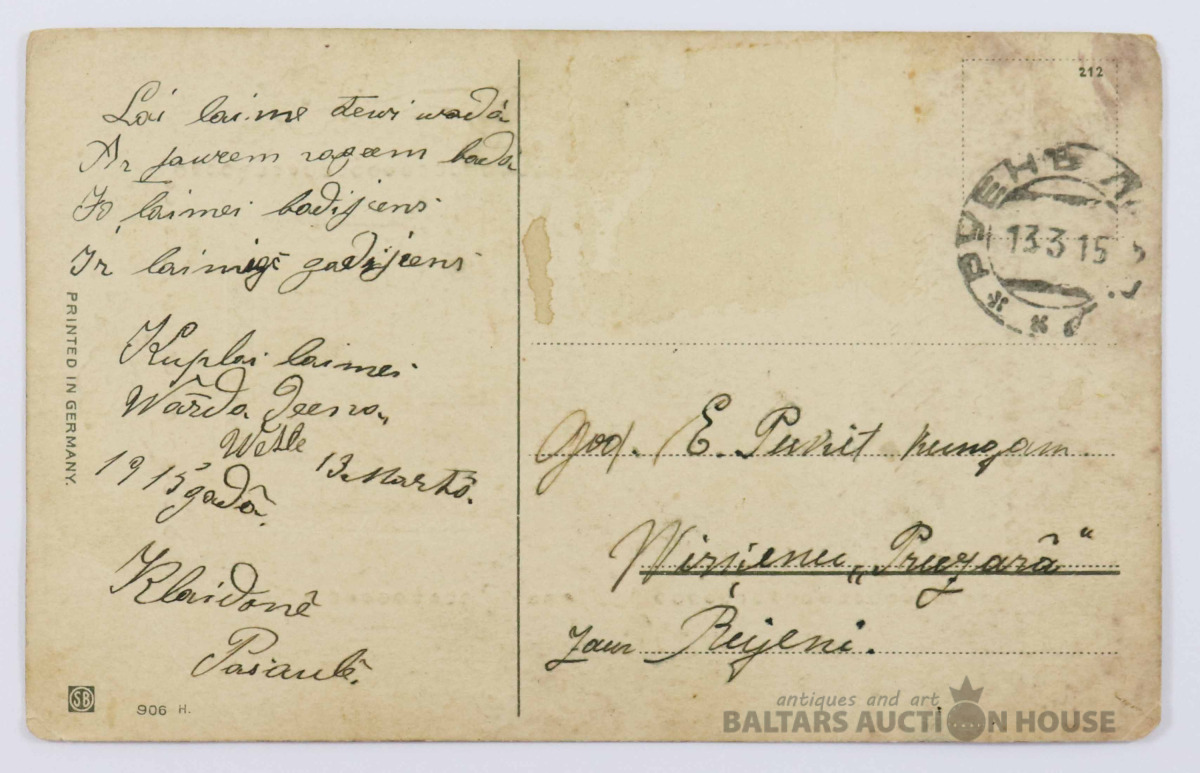 Lai laime tewi wadâ
Ar jaurem rageem bada
Jo laimei badijeens
Ir laimigs gadijeens
Kuplai laimei
Wârda Deena,
Westle
1915 gadâ. 13. Martâ.
Klaidonê
Pasaulê.
PRINTED IN GERMANY.
SB
906 H.
212
РУЕНЪ Л
13 3 15
God. E. Purit kungam
Wirķenu „Pruzarâ“
zaur Rujeni.
antiques and art
BALTARS AUCTION HOUSE